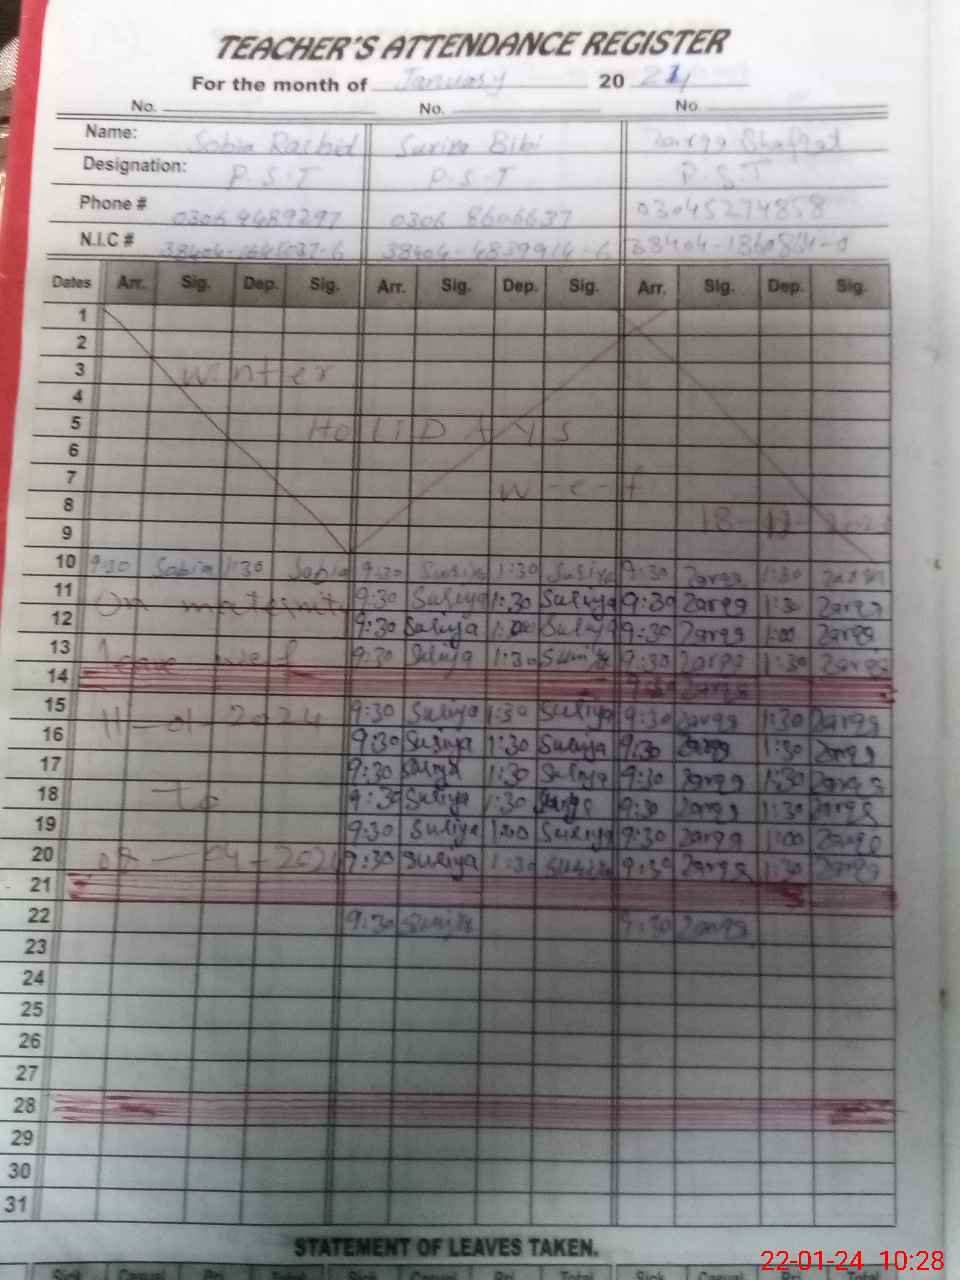 TEACHER'S ATTENDANCE REGISTER
For the month of January 20 24
No. No. No.
Name: Sobia Rashid Bibi
Designation: P.S.T P.S.T P.S.T
Phone # 0306 9489297 0306 8606637 03045274858
N.I.C # 38404-4839914-6
Dates Arr. Sig. Dep. Sig. Arr. Sig. Dep. Sig. Arr. Sig. Dep. Sig.
1
2
3 Winter
4
5 HOLIDAYS
6
7 w-e-f
8
9
10 9:30 Sobia 1:30 Sobia 9:30 1:30 9:30 Zarqa 1:30
11 On maternity 9:30 Suriya 1:30 Suriya 9:30 Zarqa 1:30 Zarqa
12 9:30 Suriya 1:00 Suriya 9:30 Zarqa 1:00 Zarqa
13 Leave w.e.f 9:30 Suriya 1:30 Suriya 9:30 Zarqa 1:30 Zarqa
14 9:30 Zarqa
15 11-01-2024 9:30 Suriya 1:30 Suriya 9:30 Zarqa 1:30 Zarqa
16 9:30 Suriya 1:30 Suriya 9:30 Zarqa 1:30 Zarqa
17 9:30 Suriya 1:30 Suriya 9:30 Zarqa 1:30 Zarqa
18 To 9:30 Suriya 1:30 9:30 Zarqa 1:30 Zarqa
19 9:30 Suriya 1:00 Suriya 9:30 Zarqa 1:00 Zarqa
20 9:30 Suriya 1:30 Suriya 9:30 Zarqa 1:30 Zarqa
21
22 9:30 Suriya 9:30 Zarqa
23
24
25
26
27
28
29
30
31
STATEMENT OF LEAVES TAKEN.
22-01-24 10:28